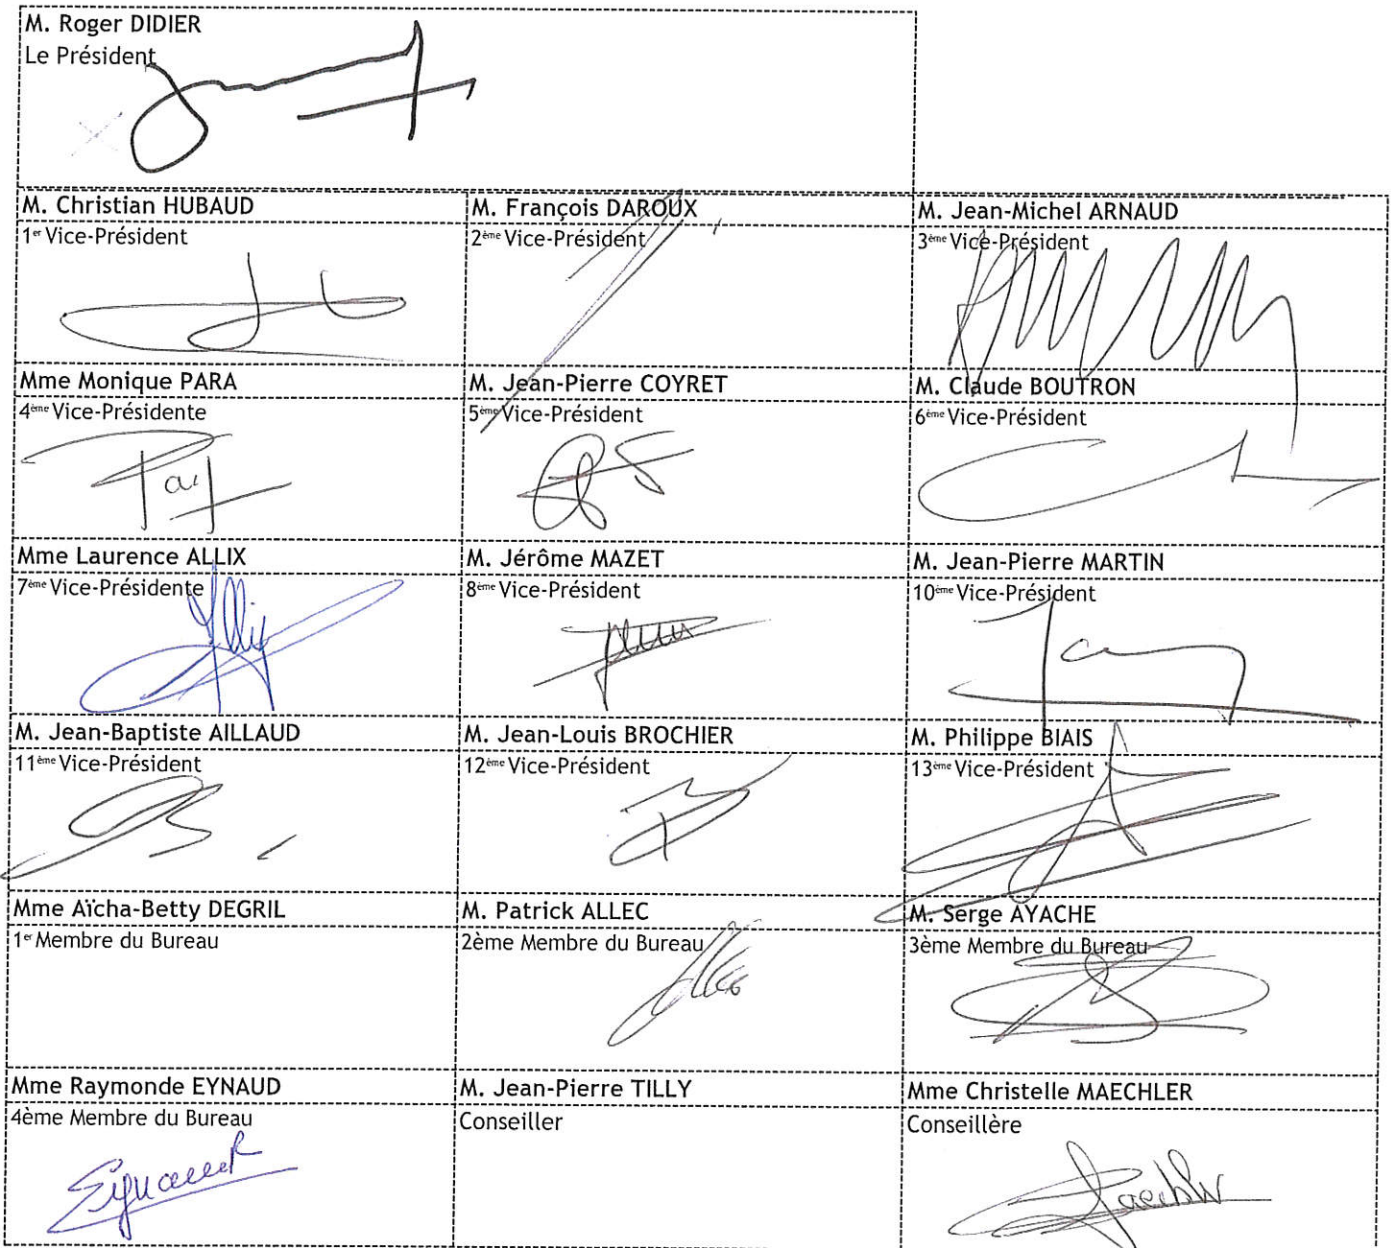 M. Roger DIDIER
Le Président
M. Christian HUBAUD
M. François DAROUX
M. Jean-Michel ARNAUD
1er Vice-Président
2ème Vice-Président
3ème Vice-Président
Mme Monique PARA
M. Jean-Pierre COYRET
M. Claude BOUTRON
4ème Vice-Présidente
5ème Vice-Président
6ème Vice-Président
Mme Laurence ALLIX
M. Jérôme MAZET
M. Jean-Pierre MARTIN
7ème Vice-Présidente
8ème Vice-Président
10ème Vice-Président
M. Jean-Baptiste AILLAUD
M. Jean-Louis BROCHIER
M. Philippe BIAIS
11ème Vice-Président
12ème Vice-Président
13ème Vice-Président
Mme Aïcha-Betty DEGRIL
M. Patrick ALLEC
M. Serge AYACHE
1er Membre du Bureau
2ème Membre du Bureau
3ème Membre du Bureau
Mme Raymonde EYNAUD
M. Jean-Pierre TILLY
Mme Christelle MAECHLER
4ème Membre du Bureau
Conseiller
Conseillère